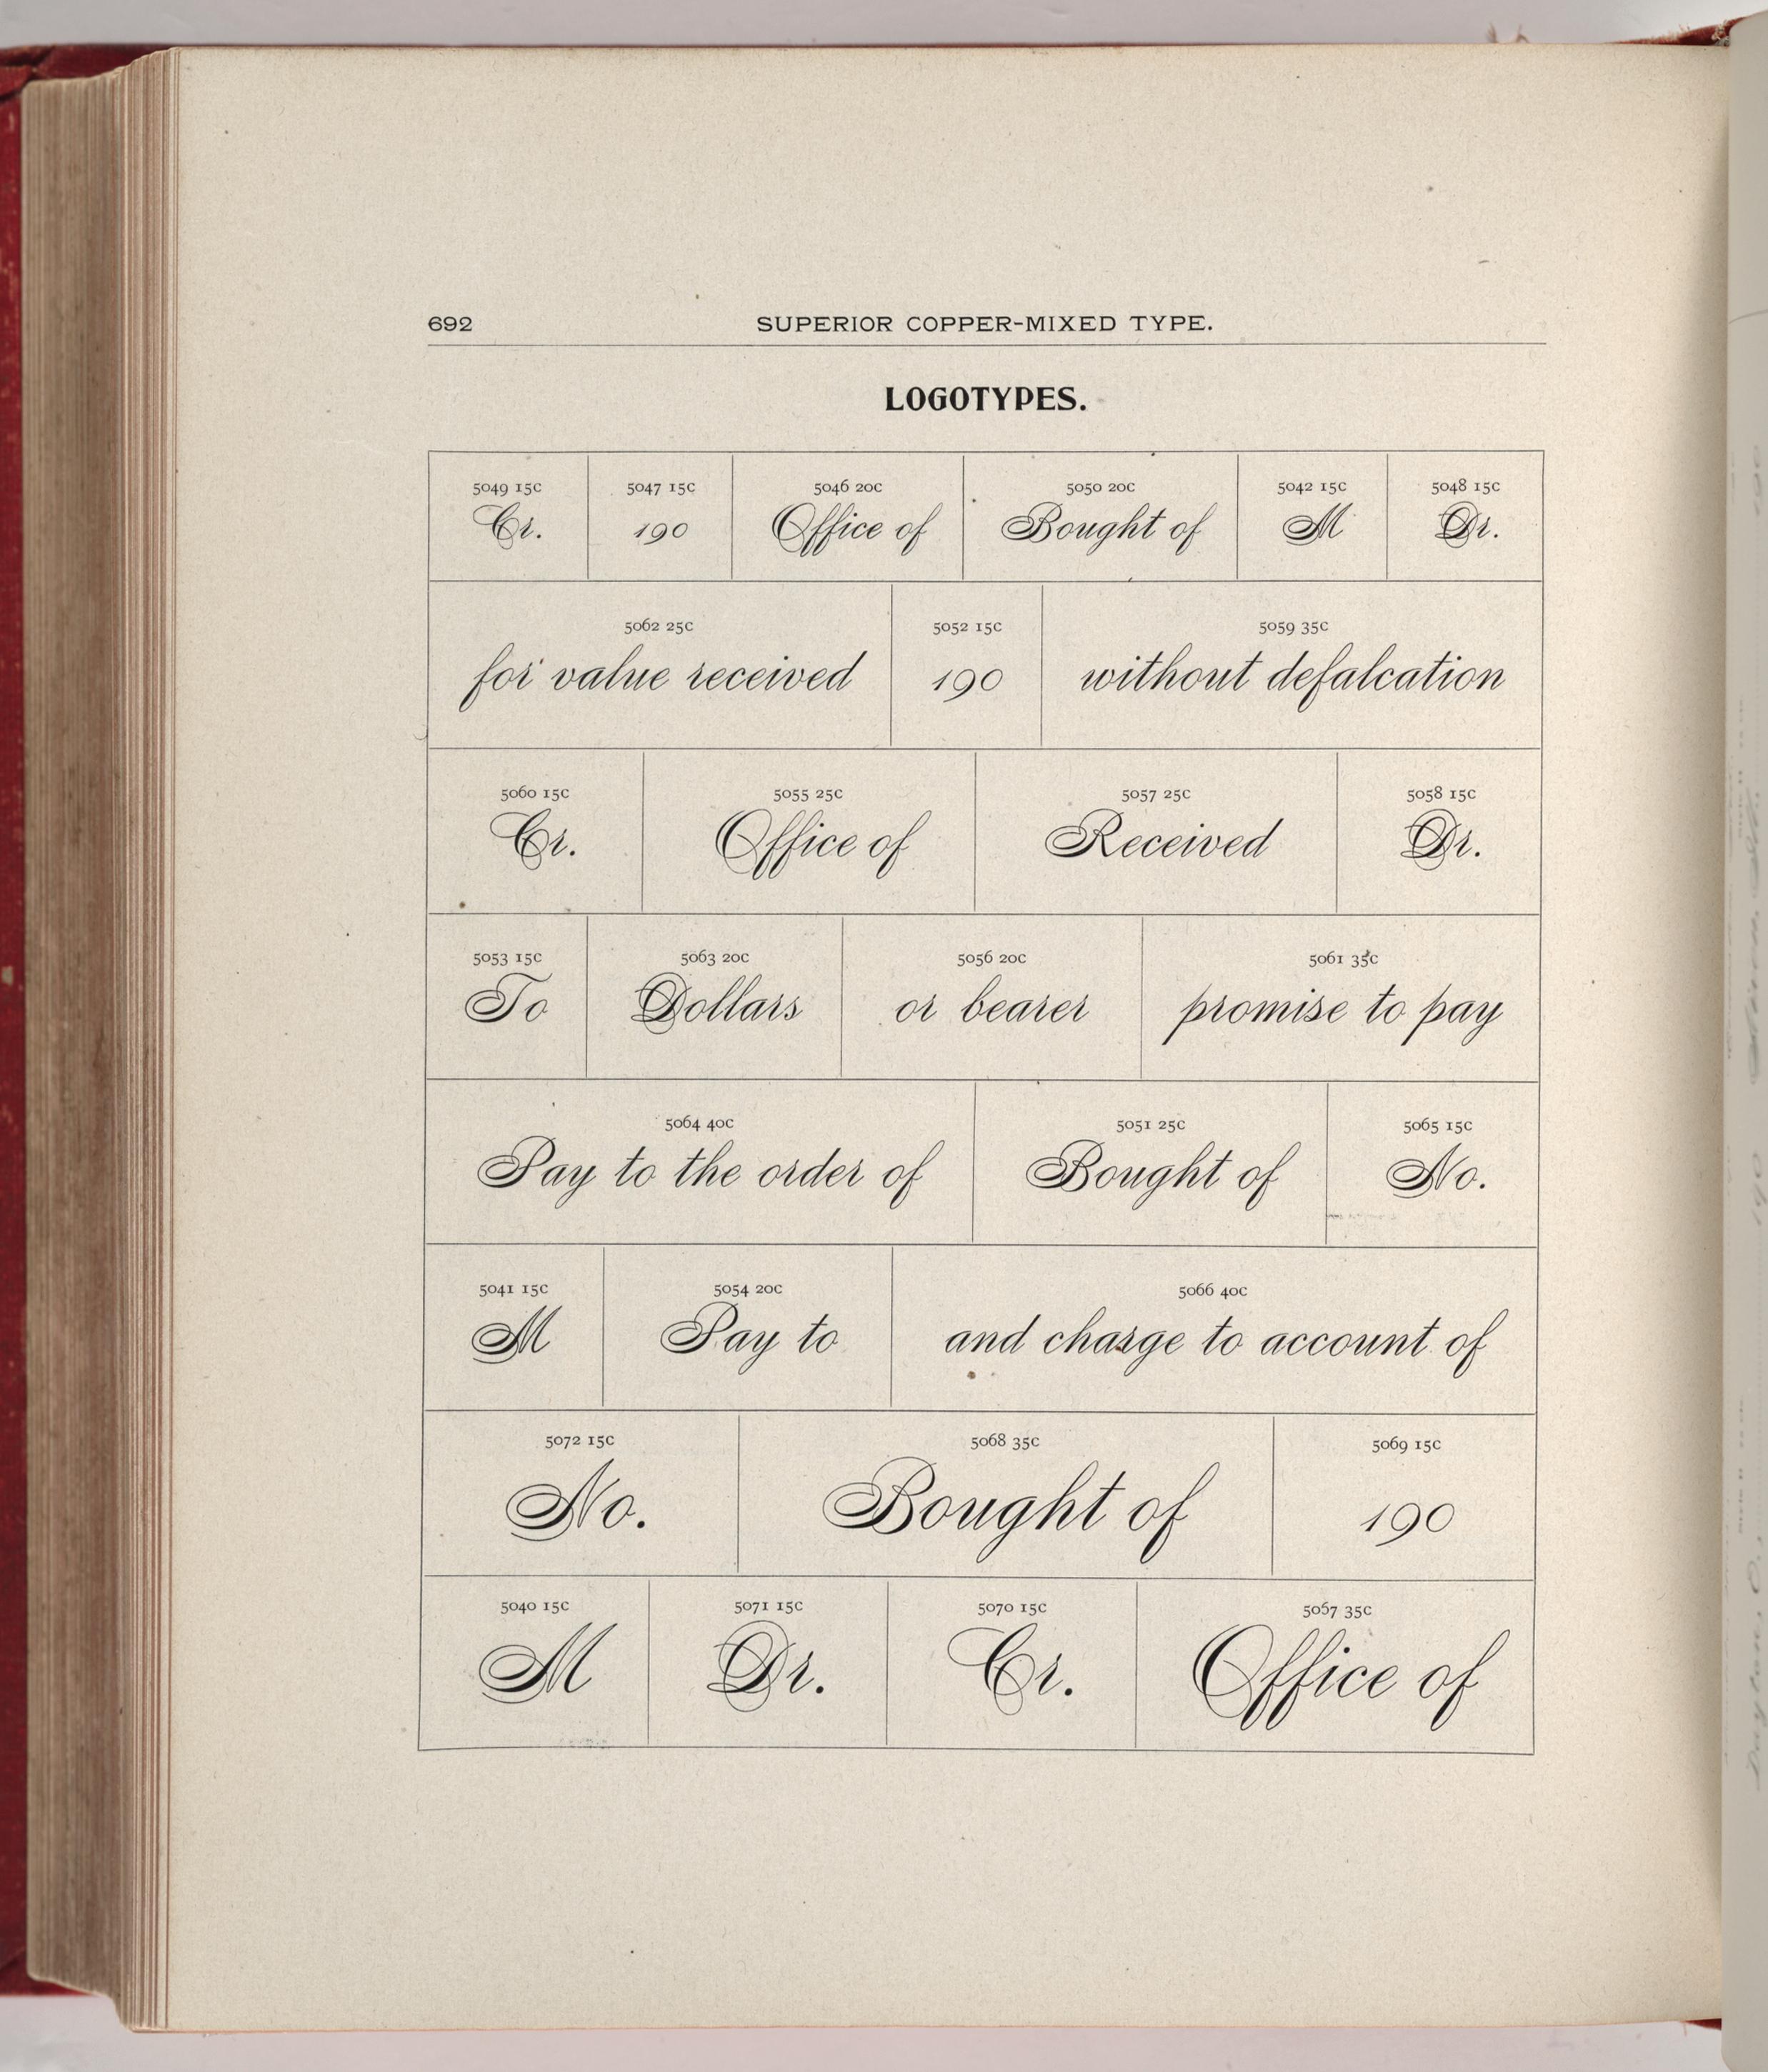 692 SUPERIOR COPPER-MIXED TYPE.
LOGOTYPES.
5049 15C 5047 15C 5046 20C 5050 20C 5042 15C 5048 15C
Cr. 190 Office of Bought of M Dr.
5062 25C 5052 15C 5059 35C
for value received 190 without defalcation
5060 15C 5055 25C 5057 25C 5058 15C
Cr. Office of Received Dr.
5053 15C 5063 20C 5056 20C 5061 35C
To Dollars or bearer promise to pay
5064 40C 5051 25C 5065 15C
Pay to the order of Bought of No.
5041 15C 5054 20C 5066 40C
M Pay to and charge to account of
5072 15C 5068 35C 5069 15C
No. Bought of 190
5040 15C 5071 15C 5070 15C 5067 35C
M Dr. Cr. Office of